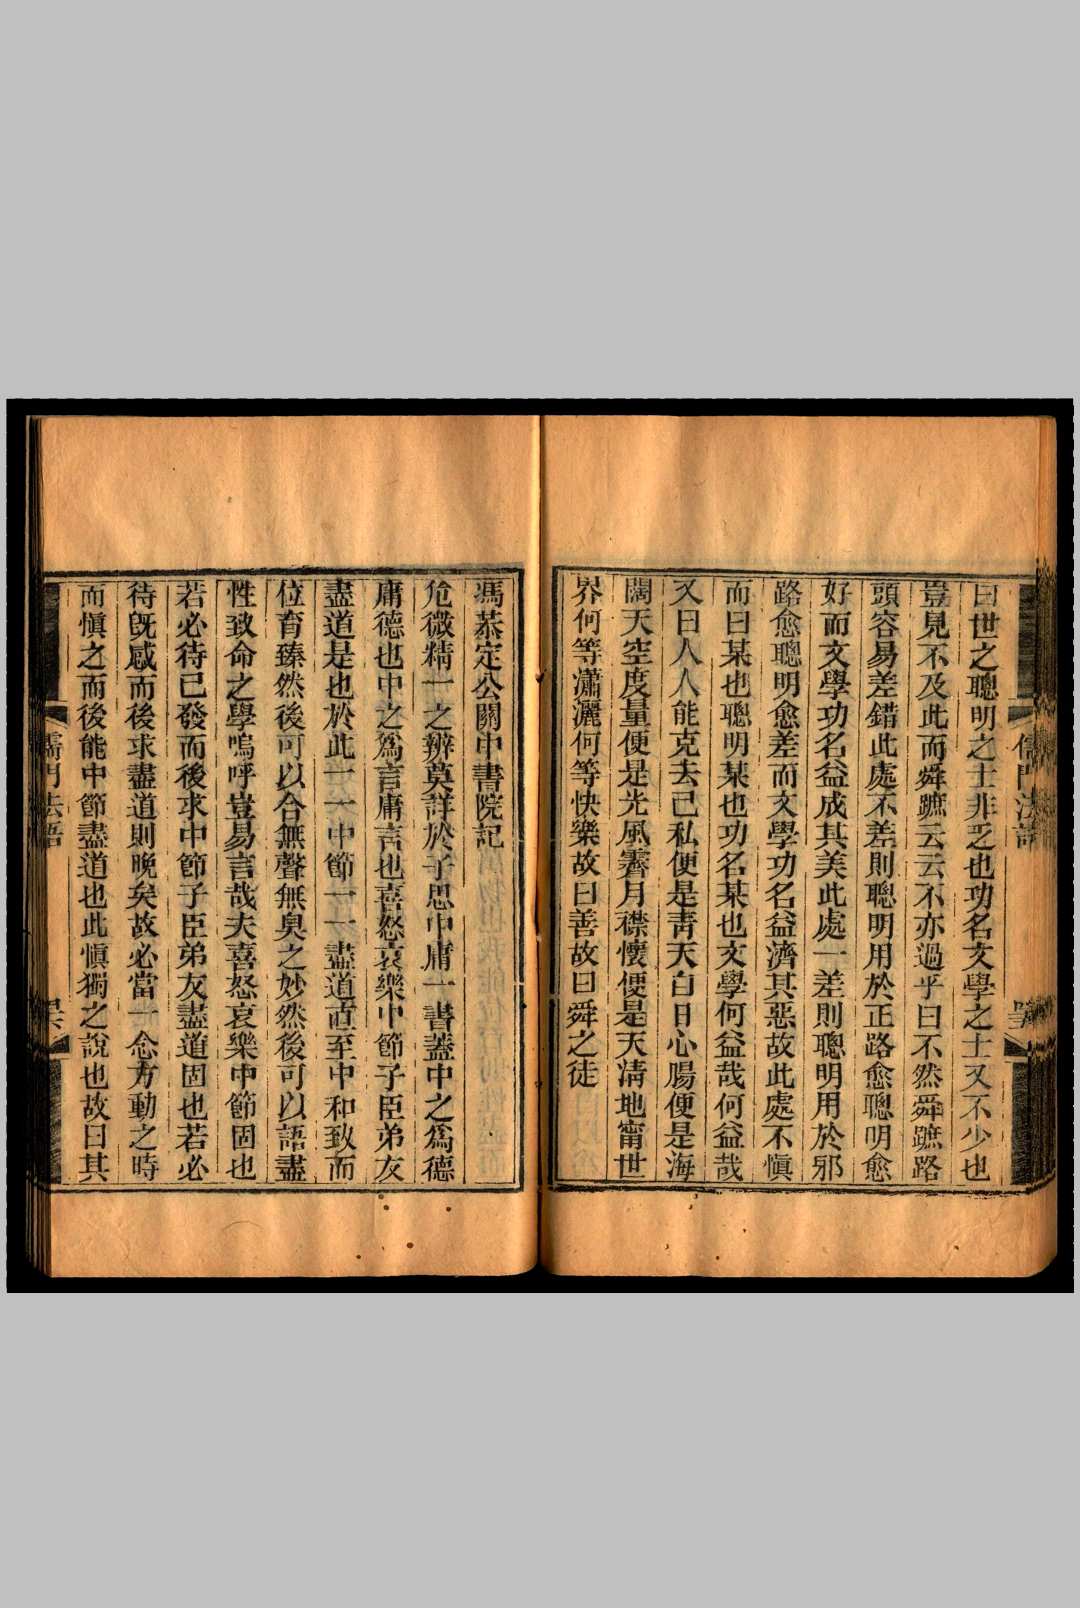 曰世之聰明之士非乏也功名文學之士又不少也
豈見不及此而舜蹠云云不亦過乎曰不然舜蹠路
頭容易差錯此處不差則聰明用於正路愈聰明愈
好而文學功名益成其美此處一差則聰明用於邪
路愈聰明愈差而文學功名益濟其惡故此處不慎
而曰某也聰明某也功名某也文學何益哉何益哉
又曰人人能克去己私便是青天白日心腸便是海
闊天空度量便是光風霽月襟懷便是天清地甯世
界何等瀟灑何等快樂故曰善故曰舜之徒
馮恭定公關中書院記
危微精一之辨莫詳於子思中庸一書蓋中之爲德
庸德也中之爲言庸言也喜怒哀樂中節子臣弟友
盡道是也於此一一中節一一盡道直至中和致而
位育臻然後可以合無聲無臭之妙然後可以語盡
性致命之學嗚呼豈易言哉夫喜怒哀樂中節固也
若必待已發而後求中節子臣弟友盡道固也若必
待旣感而後求盡道則晚矣故必當一念方動之時
而慎之而後能中節盡道也此慎獨之說也故曰其
儒門法語